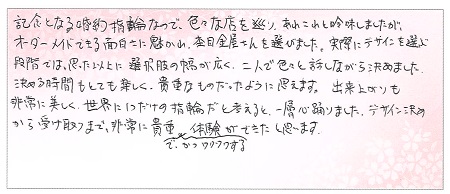 記念となる婚約指輪なので、色々な店を巡り、あれこれと吟味しましたが、
オーダーメイドできる面白さに魅かれ、杢目金屋さんを選びました。実際にデザインを選ぶ
段階では、思った以上に選択肢の幅が広く、二人で色々と話しながら決めました。
決める時間もとても楽しく、貴重なものだったように思えます。出来上がりも
非常に美しく、世界に1つだけの指輪だと考えると、一層心踊りました。デザイン決め
から受け取りまで、非常に貴重体験ができたと思います。
で、かつワクワクする